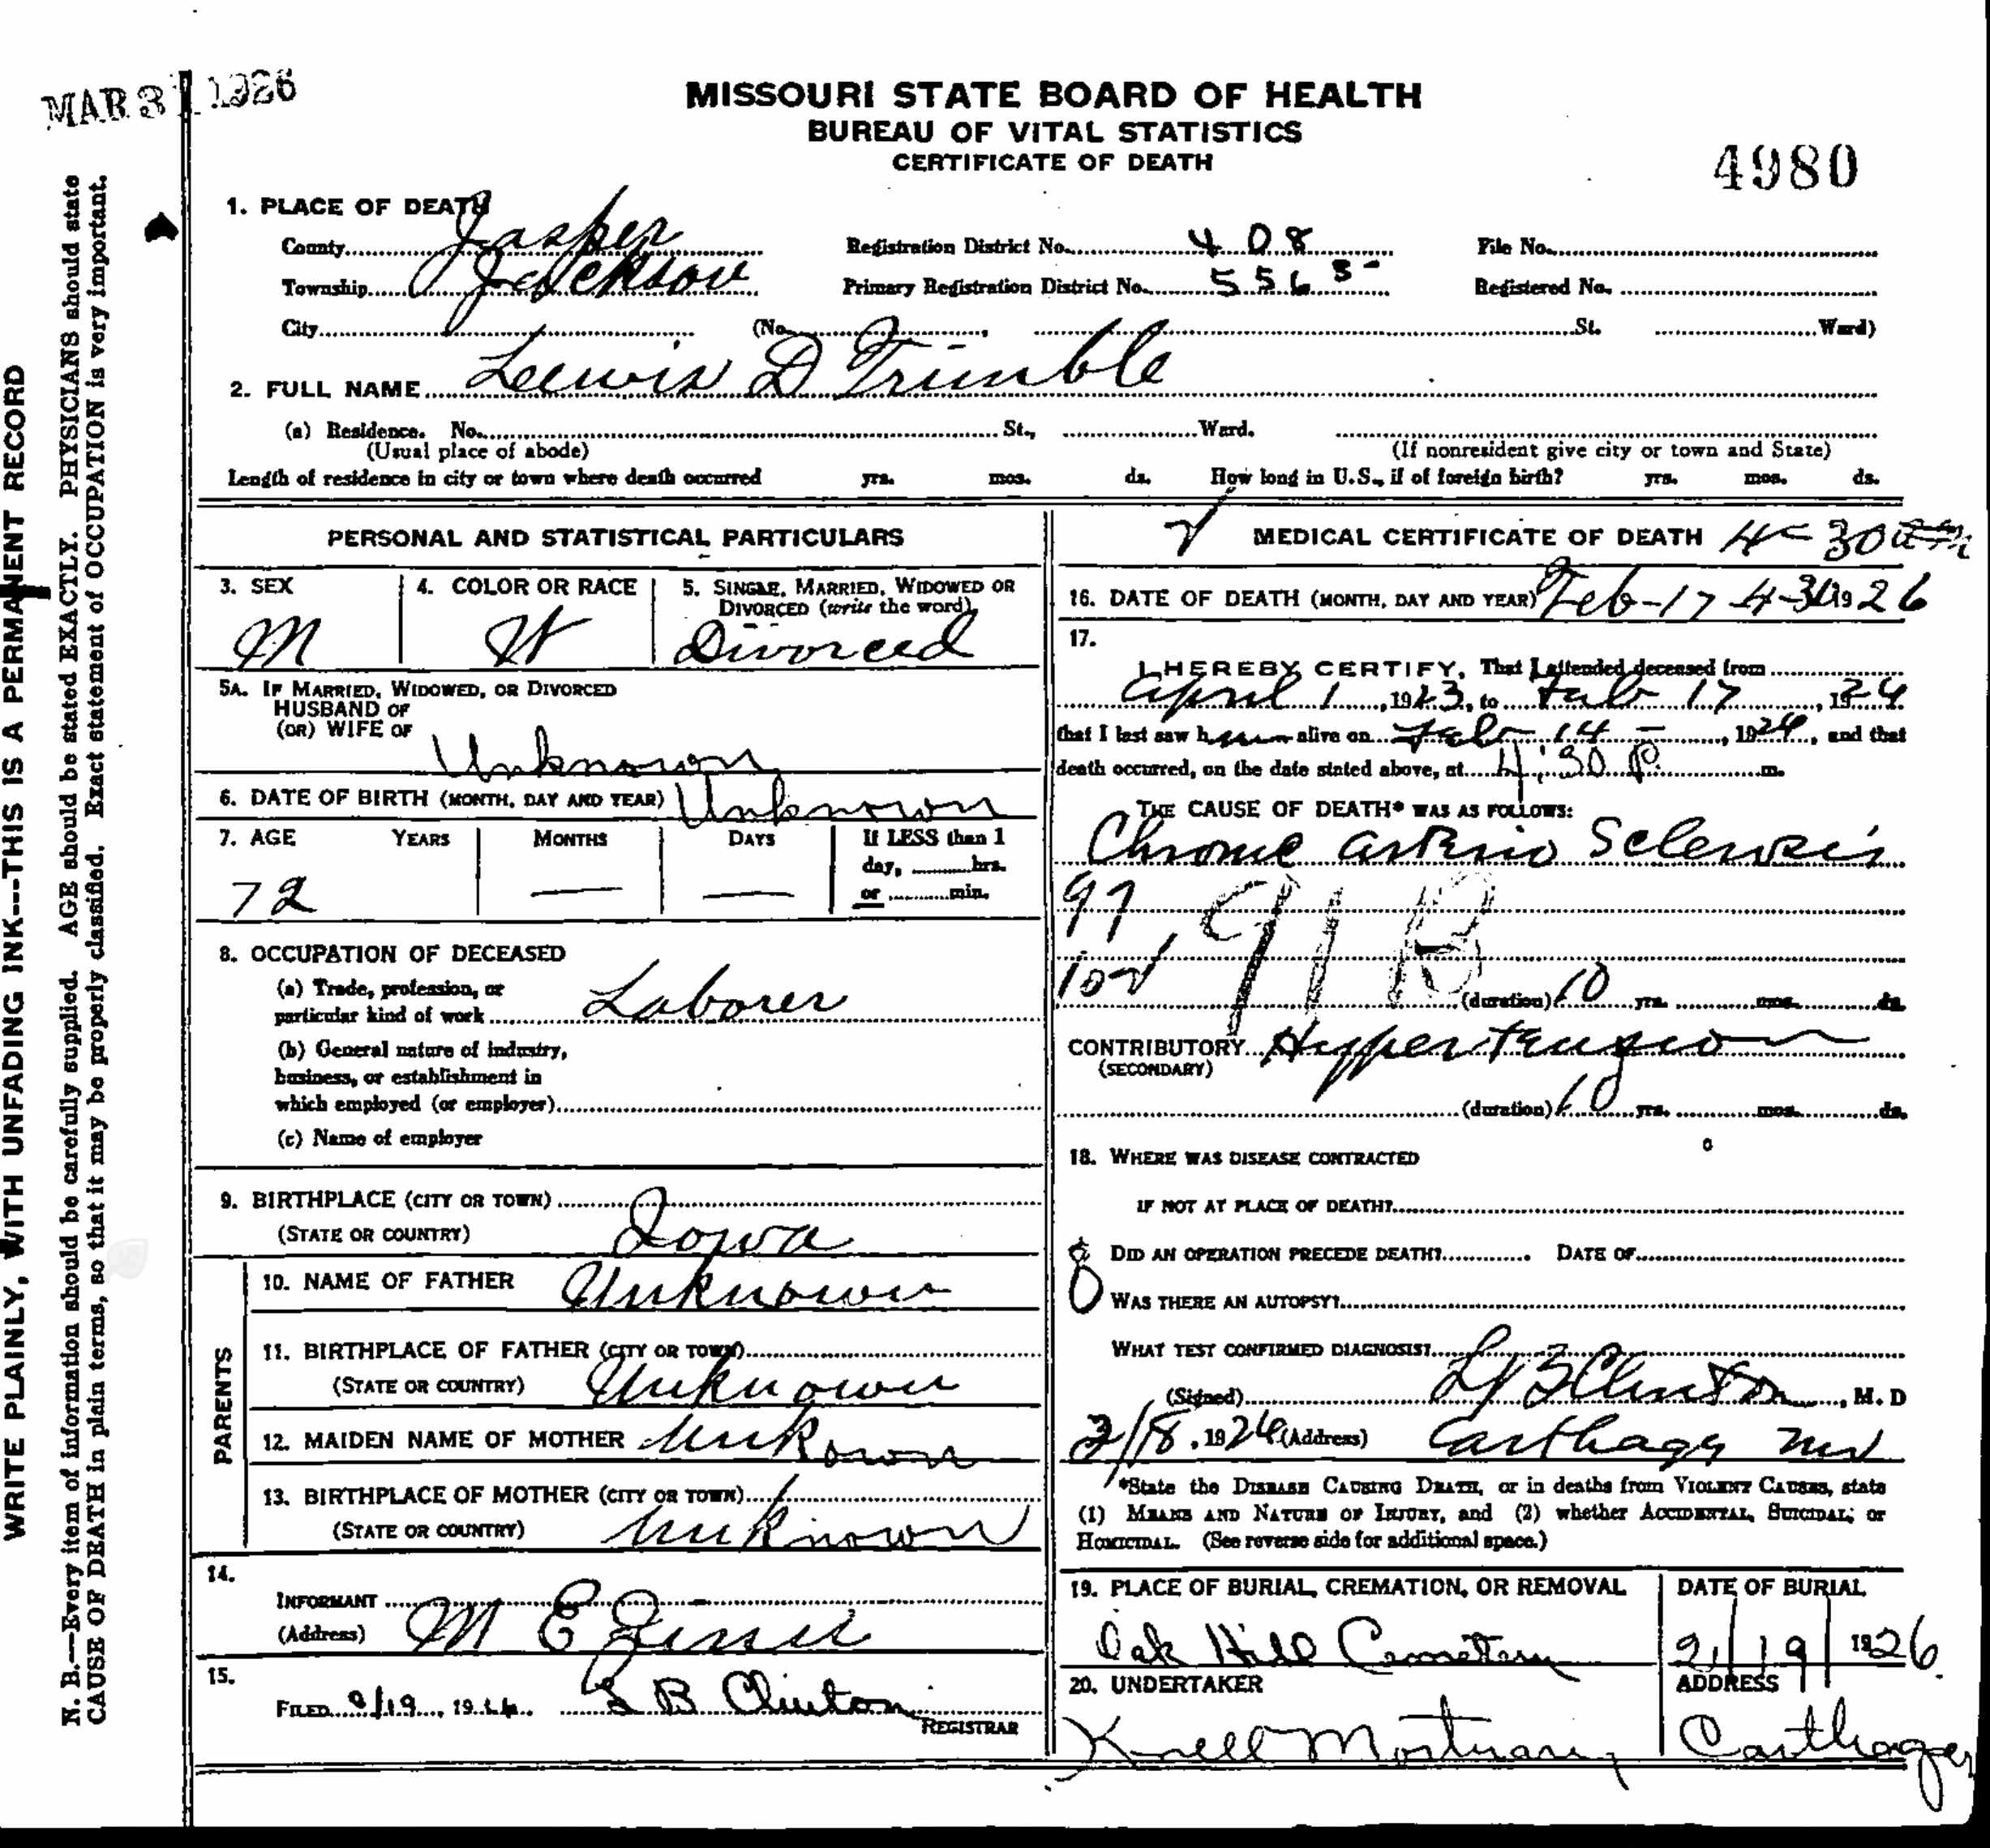 MAR 31 1926
MISSOURI STATE BOARD OF HEALTH
BUREAU OF VITAL STATISTICS
CERTIFICATE OF DEATH
4980
WRITE PLAINLY, WITH UNFADING INK---THIS IS A PERMANENT RECORD
N. B.—Every item of information should be carefully supplied. AGE should be stated EXACTLY. PHYSICIANS should state
CAUSE OF DEATH in plain terms, so that it may be properly classified. Exact statement of OCCUPATION is very important.
1. PLACE OF DEATH
County Jasper Registration District No. 408 File No.
Township Jackson Primary Registration District No. 5563 Registered No.
City (No. , St. Ward)
2. FULL NAME Lewis D Trimble
(a) Residence. No. St., Ward.
(Usual place of abode) (If nonresident give city or town and State)
Length of residence in city or town where death occurred yrs. mos. ds. How long in U.S., if of foreign birth? yrs. mos. ds.
PERSONAL AND STATISTICAL PARTICULARS
3. SEX 4. COLOR OR RACE 5. SINGLE, MARRIED, WIDOWED OR
DIVORCED (write the word)
M W Divorced
5A. IF MARRIED, WIDOWED, OR DIVORCED
HUSBAND OF
(OR) WIFE OF
Unknown
6. DATE OF BIRTH (MONTH, DAY AND YEAR) Unknown
7. AGE YEARS MONTHS DAYS If LESS than 1
day, hrs.
or min.
72 — —
8. OCCUPATION OF DECEASED
(a) Trade, profession, or
particular kind of work Laborer
(b) General nature of industry,
business, or establishment in
which employed (or employer)
(c) Name of employer
9. BIRTHPLACE (CITY OR TOWN)
(STATE OR COUNTRY) Iowa
PARENTS
10. NAME OF FATHER Unknown
11. BIRTHPLACE OF FATHER (CITY OR TOWN)
(STATE OR COUNTRY) Unknown
12. MAIDEN NAME OF MOTHER Unkown
13. BIRTHPLACE OF MOTHER (CITY OR TOWN)
(STATE OR COUNTRY) Unknown
14.
INFORMANT M E
(Address)
15.
FILED 2/19, 19 L B Clinton
REGISTRAR
MEDICAL CERTIFICATE OF DEATH 4-30
16. DATE OF DEATH (MONTH, DAY AND YEAR) Feb-17 4-30 1926
17.
I HEREBY CERTIFY, That I attended deceased from
April 1, 1923, to Feb 17, 1926
that I last saw him alive on Feb 14 -, 1926, and that
death occurred, on the date stated above, at 4:30 P. m.
THE CAUSE OF DEATH* WAS AS FOLLOWS:
Chronic arterio Sclerosis
97 91B
(duration) 10 yrs. mos. ds.
CONTRIBUTORY Hypertension
(SECONDARY)
(duration) 10 yrs. mos. ds.
18. WHERE WAS DISEASE CONTRACTED
IF NOT AT PLACE OF DEATH?
DID AN OPERATION PRECEDE DEATH? DATE OF
WAS THERE AN AUTOPSY?
WHAT TEST CONFIRMED DIAGNOSIS?
(Signed) L B Clinton, M. D
2/18, 1926 (Address) Carthage Mo
*State the DISEASE CAUSING DEATH, or in deaths from VIOLENT CAUSES, state
(1) MEANS AND NATURE OF INJURY, and (2) whether ACCIDENTAL, SUICIDAL, or
HOMICIDAL. (See reverse side for additional space.)
19. PLACE OF BURIAL, CREMATION, OR REMOVAL DATE OF BURIAL
Oak Hill Cemetery 2/19/1926
20. UNDERTAKER ADDRESS
Knell Mortuary Carthage